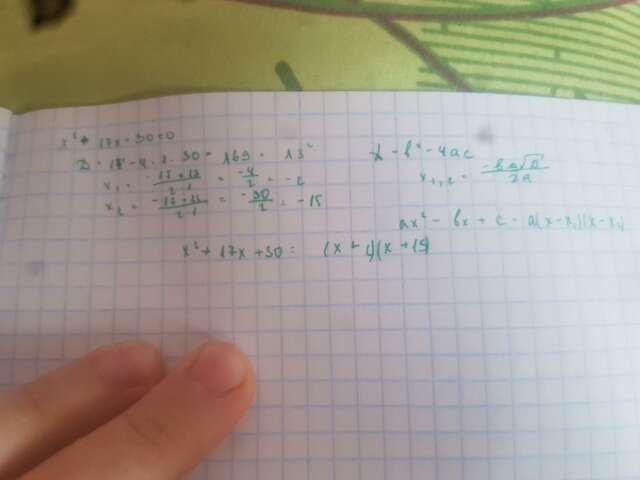 x² + 17x + 30 = 0
D = 17² - 4 · 1 · 30 = 169 = 13²
x₁ = (-17 + 13)/(2·1) = -4/2 = -2
x₂ = (-17 + 13)/(2·1) = -30/2 = -15
D = b² - 4ac
x₁,₂ = (-b ± √D)/2a
ax² - bx + c = a(x - x₁)(x - x₂)
x² + 17x + 30 = (x + 2)(x + 15)